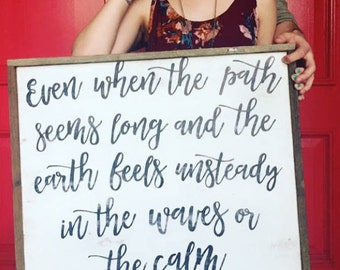 Even when the path
seems long and the
earth feels unsteady
in the waves or
the calm